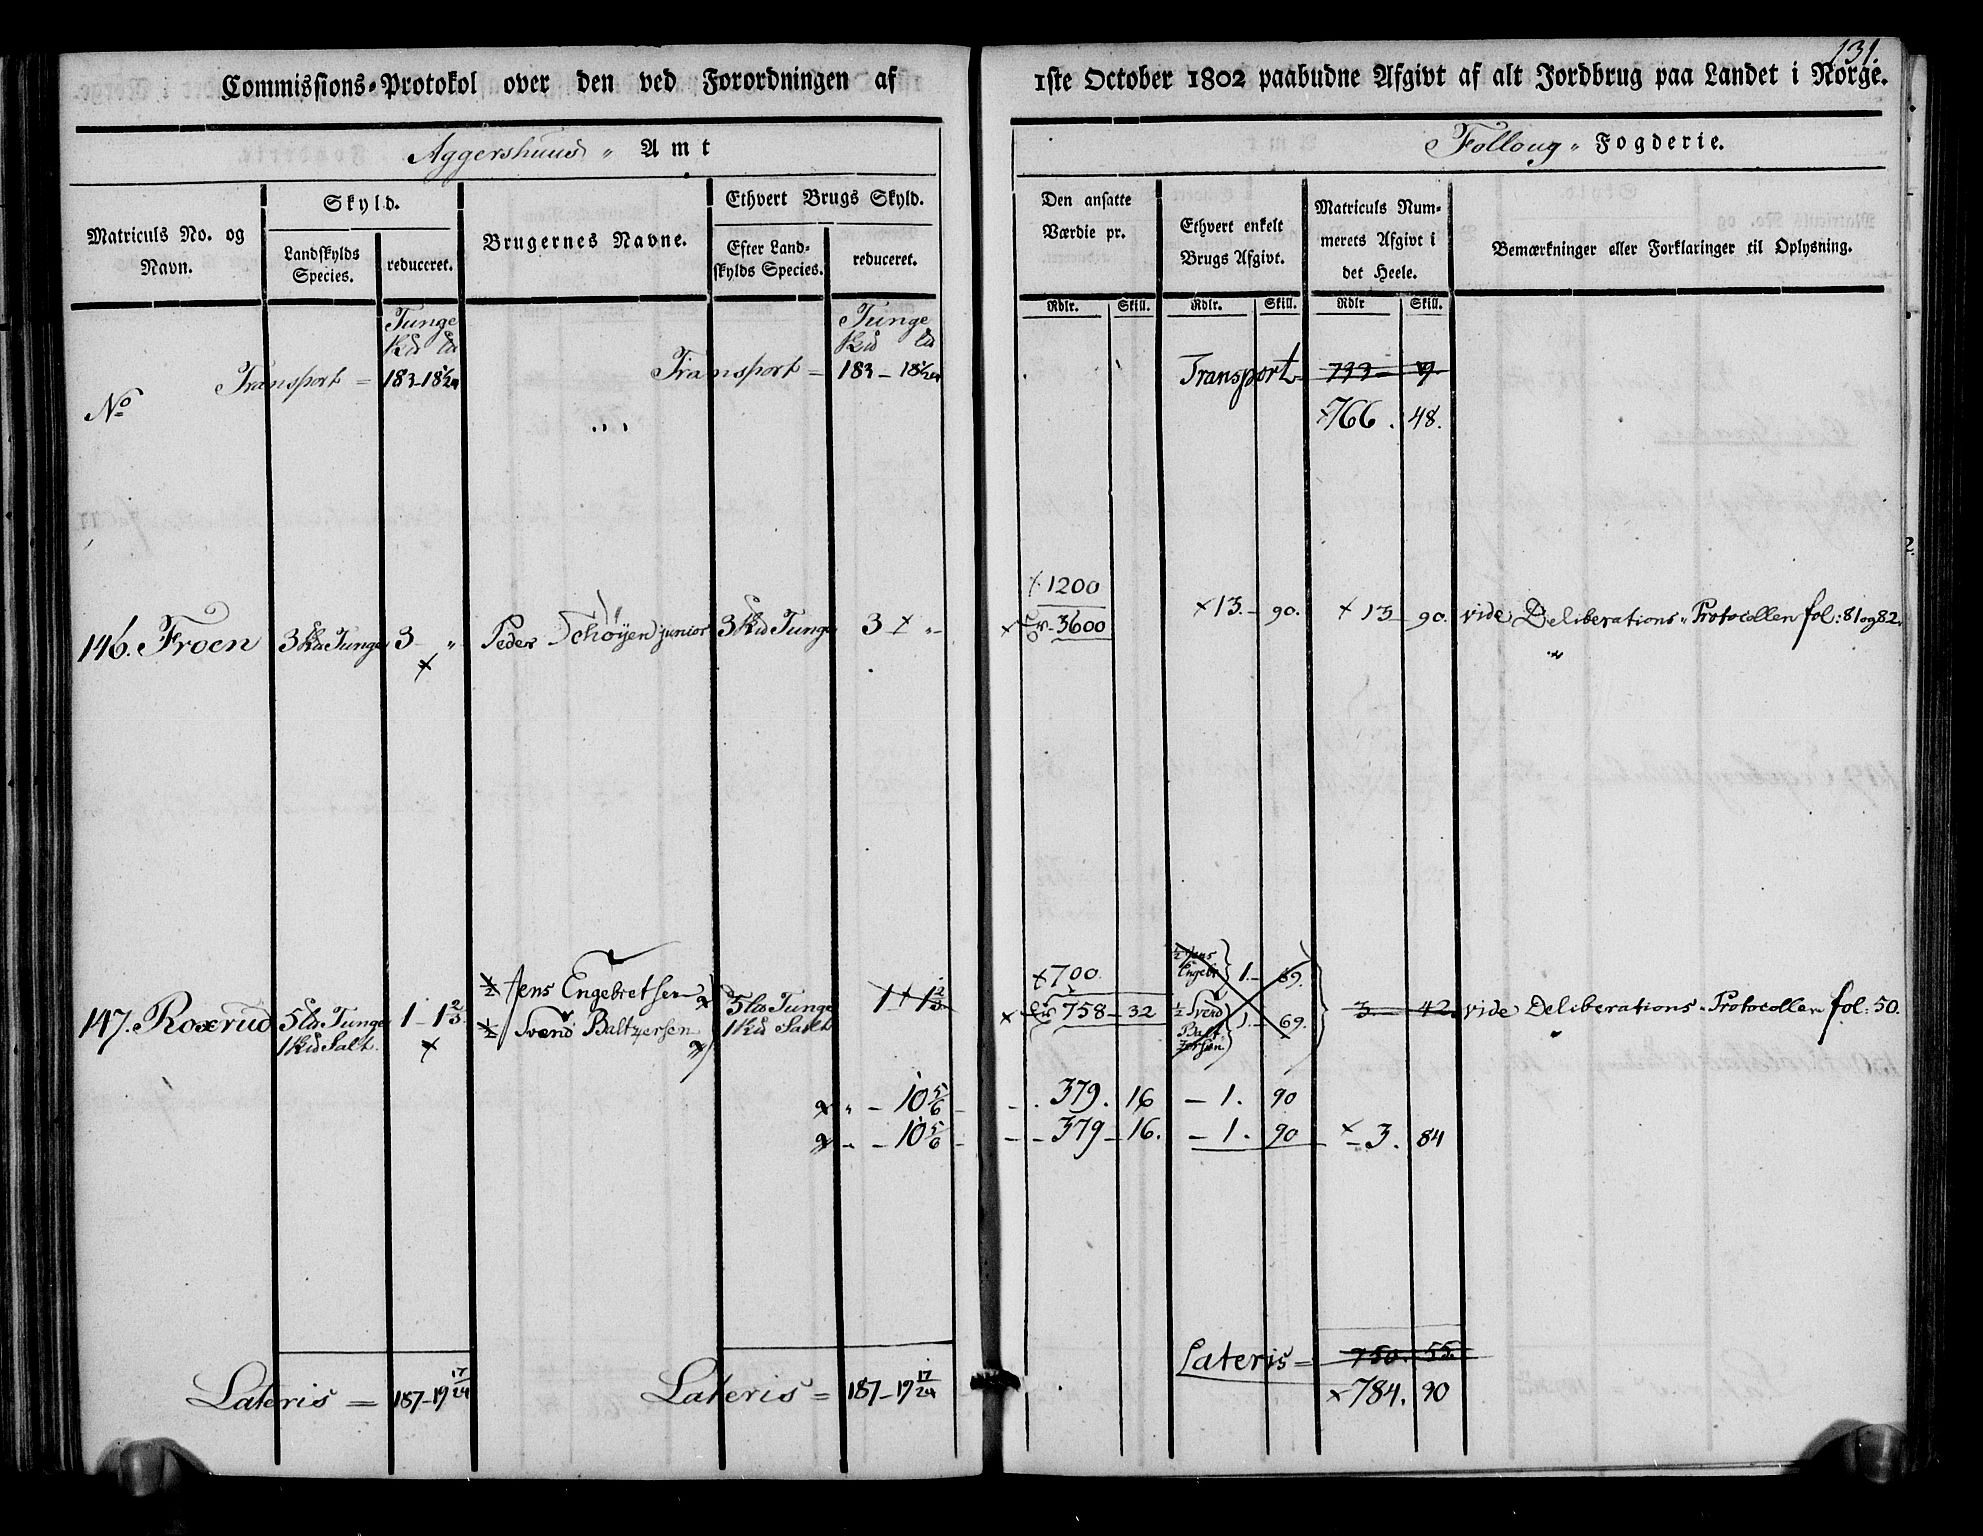 131.
Commissions-Protokol over den ved Forordningen af 1ste October 1802 paabudne Afgivt af alt Jordbrug paa Landet i Norge.
Aggershuus „ Amt
Folloug „ Fogderie.
Matriculs No. og Navn.
Skyld.
Landskylds Species.
reduceret.
Brugernes Navne.
Ethvert Brugs Skyld.
Efter Landskylds Species.
reduceret.
Den ansatte Værdie pr.
Ethvert enkelt Brugs Afgivt.
Matriculs Nummerets Afgivt i det Heele.
Bemærkninger eller Forklaringer til Oplysning.
Rdlr. Skill. Rdlr. Skill. Rdlr Skill.
Tunge Tunge
No
Transport = 183-18 1/24 Transport - 183 - 18 1/24 Transport 733 - 9
×766. 48.
×1200
146. Froen 3 Tunge 3 „ Peder Schöyen junior 3 Tunge 3 × „ × 3600 ×13. - 90. ×13 - 90. vide Deliberations-Protocollen fol: 81 og 82.
×700.
147. Roxerud 5 Tunge 1 - 1 2/3 1/2 Jens Engebretsen 5 Tunge 1 × 1 2/3 × 758 - 32 1/2 Jens Engebr 1. - 69. 3. 42 vide Deliberations-Protocollen fol: 50.
1 Salt. × 1/2 Svend Baltzersen 1 Salt 1/2 Svend Baltzersen 1. - 69.
× „ - 10 5/6 - . 379. 16 - 1. 90
× - - 10 5/6 - 379 - 16. - 1. 90 × 3. 84
Lateris = 187-19 17/24 Lateris = 187-19 17/24 Lateris = 750. 55.
×784. 90